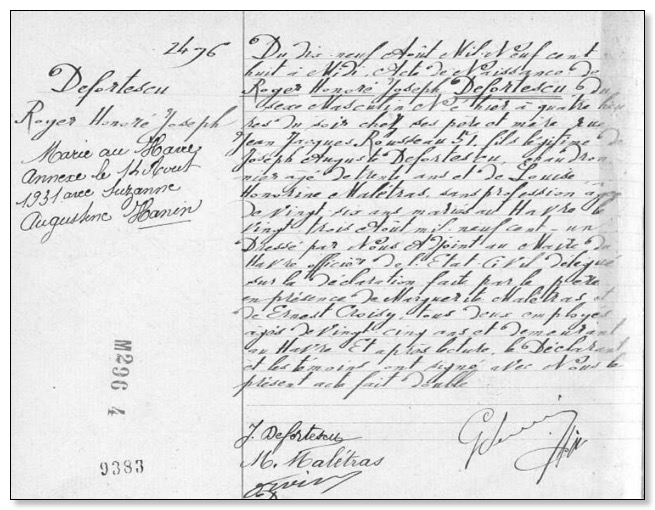 2476
Defortescu
Roger Honoré Joseph
Marié au Havre
Annexe le 14 Aout
1931 avec Suzanne
Augustine Hanin
M296 4
9383
Du dix neuf Août Mil Neuf cent
huit à Midi. Acte de Naissance de
Roger Honoré Joseph Defortescu du
sexe Masculin Né hier à quatre heu
res du soir chez ses père et mère, rue
Jean Jacques Rousseau 51, fils légitime de
Joseph Auguste Defortescu,
nier agé de trente ans et de Louise
Honorine Malétras, sans profession agée
de vingt six ans mariés au Havre le
vingt trois Août mil neuf cent un
Dressé par Nous Adjoint au Maire du
Havre, officier de l'Etat Civil délégué
sur la déclaration faite par le père
en présence de Marguerite Malétras et
de Ernest Croisy, tous deux employés
agés de vingt cinq ans et demeurant
au Havre. Et après lecture, le Déclarant
et les témoins ont signé avec Nous le
présent acte fait double
J. Defortescu
M. Malétras